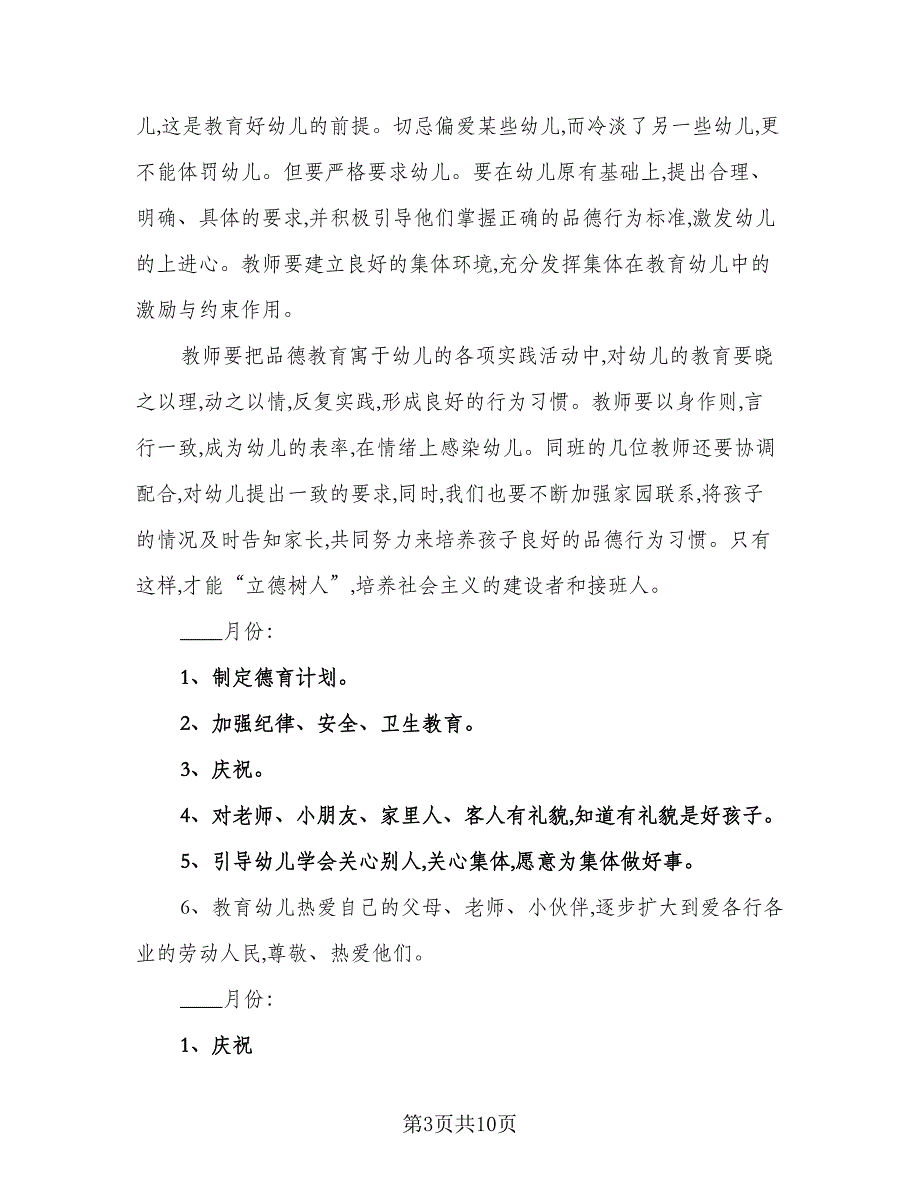 儿,这是教育好幼儿的前提。切忌偏爱某些幼儿,而冷淡了另一些幼儿,更
不能体罚幼儿。但要严格要求幼儿。要在幼儿原有基础上,提出合理、
明确、具体的要求,并积极引导他们掌握正确的品德行为标准,激发幼儿
的上进心。教师要建立良好的集体环境,充分发挥集体在教育幼儿中的
激励与约束作用。
教师要把品德教育寓于幼儿的各项实践活动中,对幼儿的教育要晓
之以理,动之以情,反复实践,形成良好的行为习惯。教师要以身作则,言
行一致,成为幼儿的表率,在情绪上感染幼儿。同班的几位教师还要协调
配合,对幼儿提出一致的要求,同时,我们也要不断加强家园联系,将孩子
的情况及时告知家长,共同努力来培养孩子良好的品德行为习惯。只有
这样,才能“立德树人”,培养社会主义的建设者和接班人。
____月份:
1、制定德育计划。
2、加强纪律、安全、卫生教育。
3、庆祝。
4、对老师、小朋友、家里人、客人有礼貌,知道有礼貌是好孩子。
5、引导幼儿学会关心别人,关心集体,愿意为集体做好事。
6、教育幼儿热爱自己的父母、老师、小伙伴,逐步扩大到爱各行各
业的劳动人民,尊敬、热爱他们。
____月份:
1、庆祝
第3页共10页